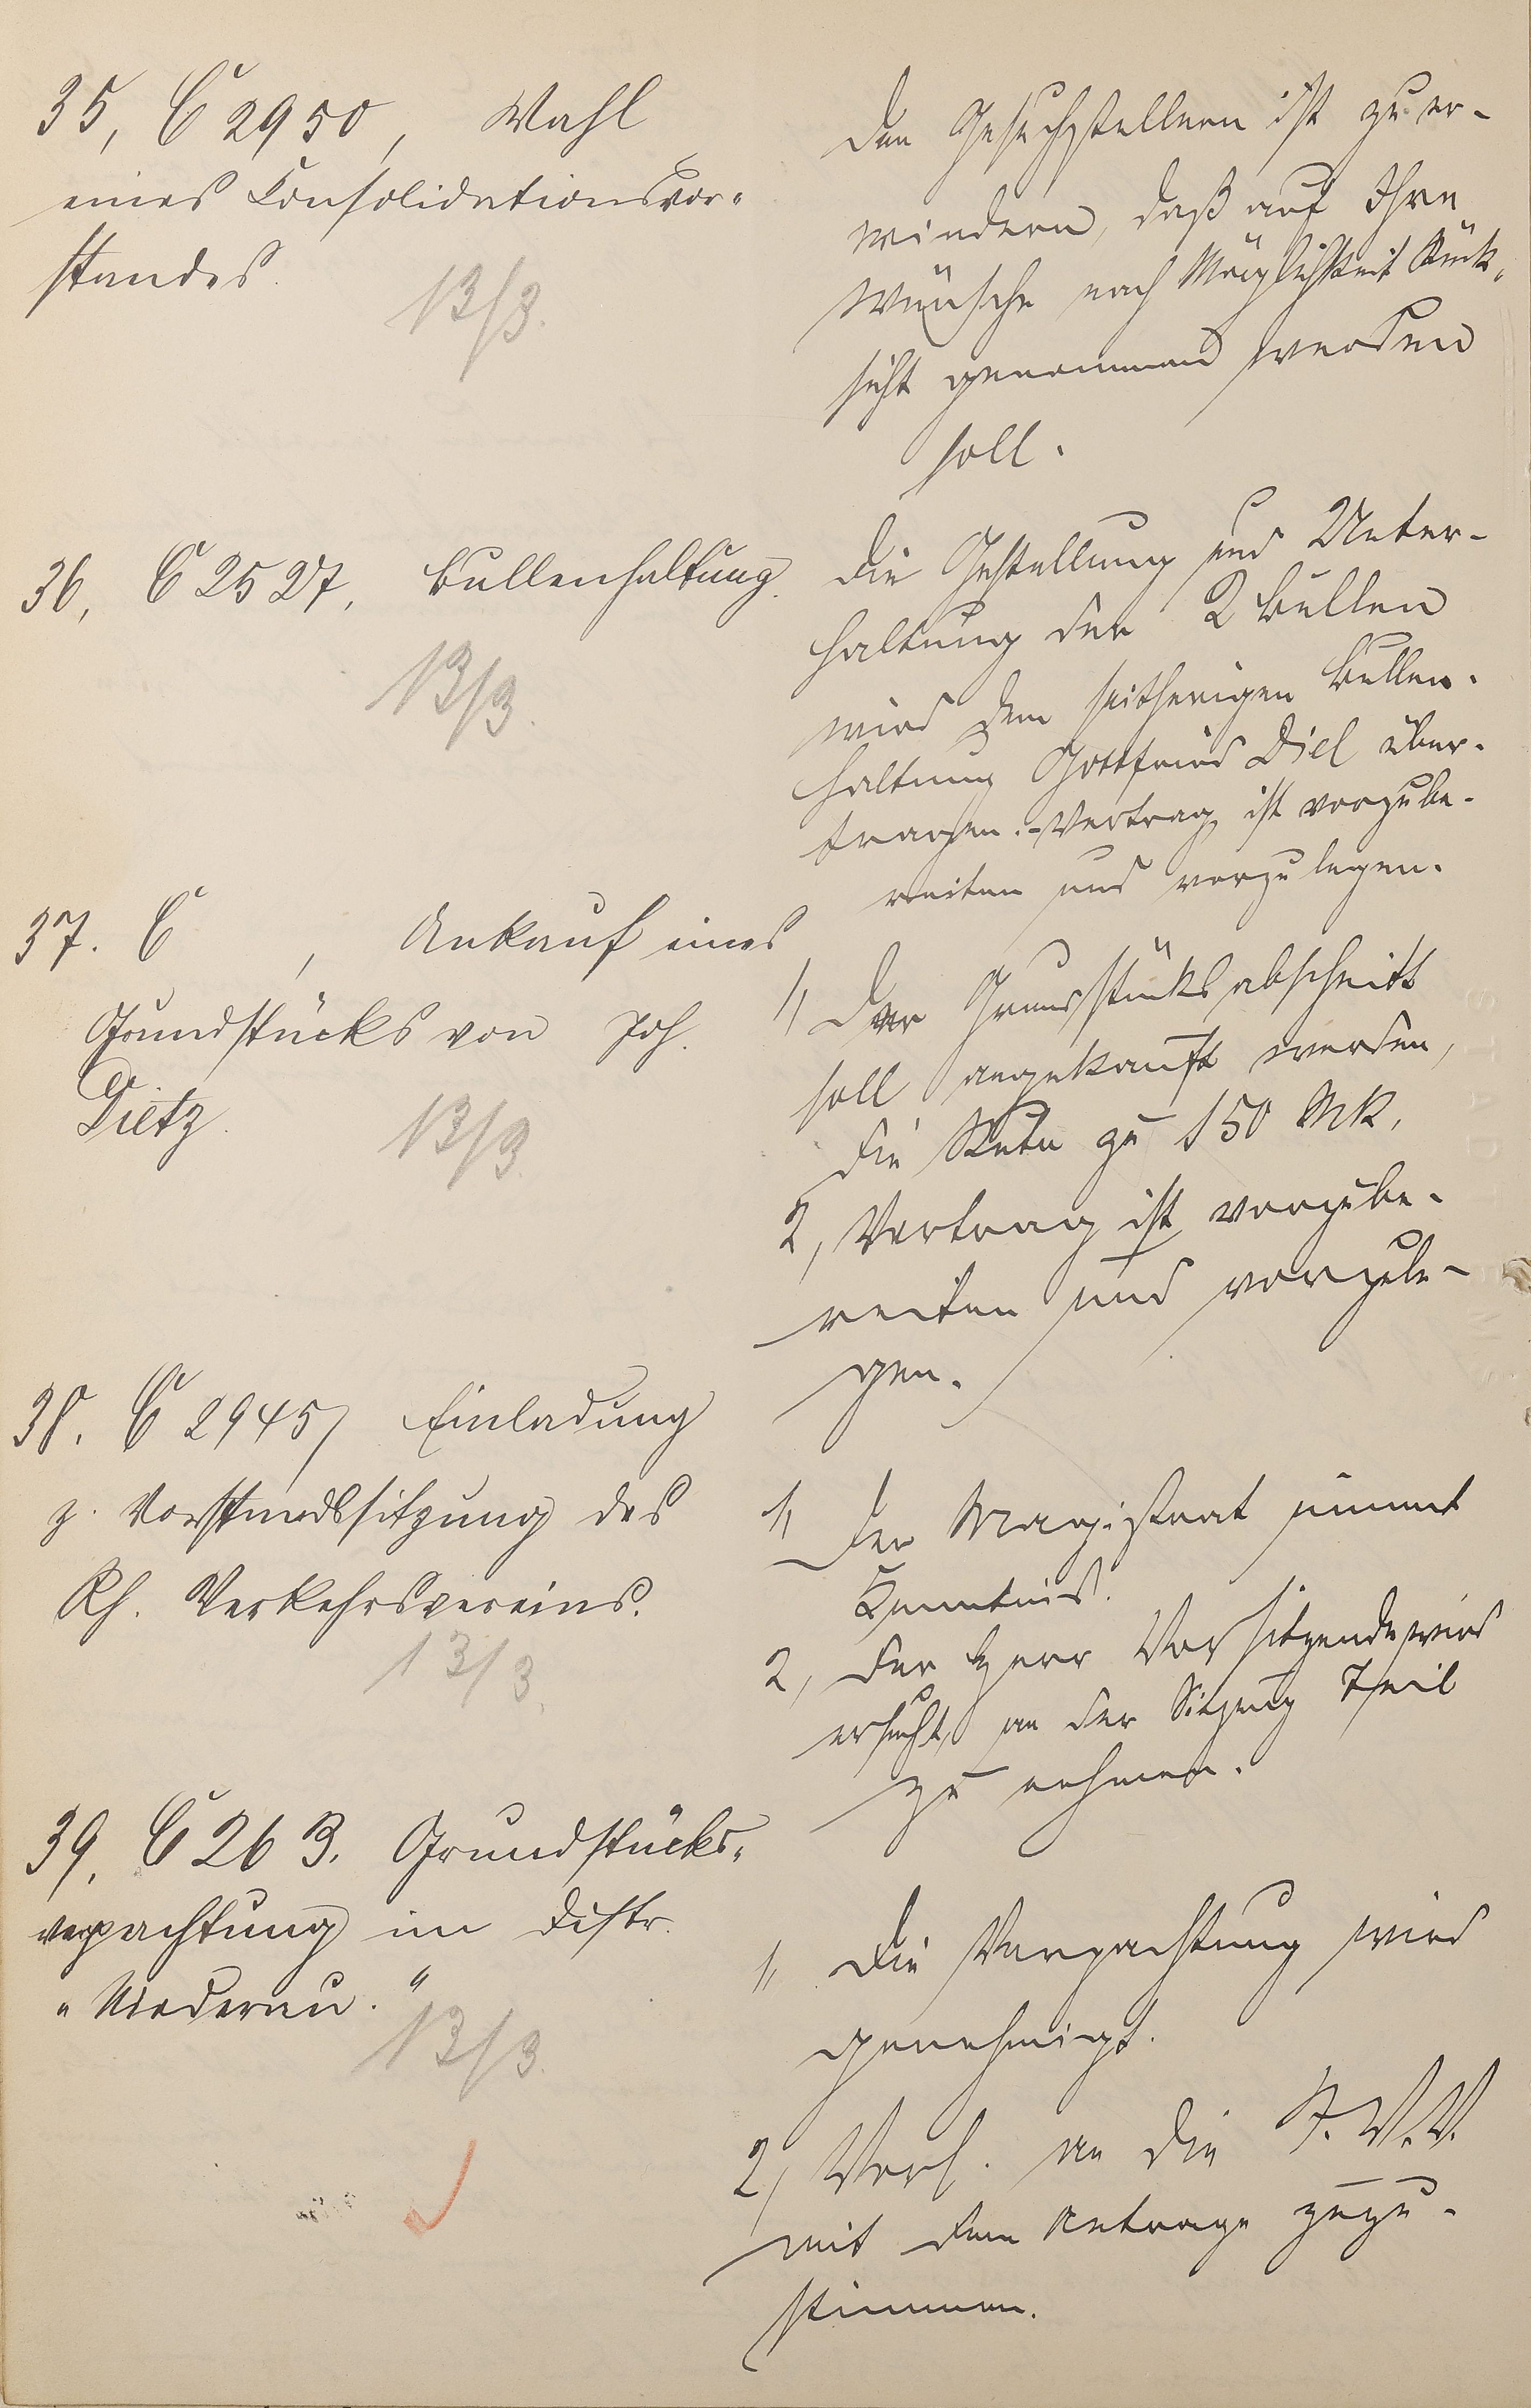 35, C 2950, Wahl
eines Consolidationsvor-
standes.
13/3.
Den Gesuchstellern ist zu er-
wiedern, daß auf Ihre
Wünsche nach Möglichkeit Rück-
sicht genommen werden
soll.
36, C 2527, Bullenhaltung.
13/3.
Die Gestellung und Unter-
haltung der 2 Bullen
wird dem seitherigen Bullen-
haltung Gottfried Diel über-
tragen.-Vertrag ist vorzube-
reiten und vorzulegen.
37. C , Ankauf eines
Grundstücks von Joh.
Dietz.
13/3.
1, Der Grundstücksabschnitt
soll angekauft werden,
die Rute zu 150 Mk.
2, Vertrag ist vorzube-
reiten und vorzule-
gen.
38. C 2945, Einladung
z. Vorstandssitzung des
Rh. Verkehrsvereins.
13/3.
1, Der Magistrat nimmt
Kenntnis.
2, Der Herr Vorsitzende wird
ersucht, an der Sitzung Theil
zu nehmen.
39, C 263. Grundstücks-
verpachtung im Distr.
"Niederau."
13/3.
1, Die Verpachtung wird
genehmigt.
2, Vorl. an die St.V.V.
mit dem Antrage zuzu-
stimmen.